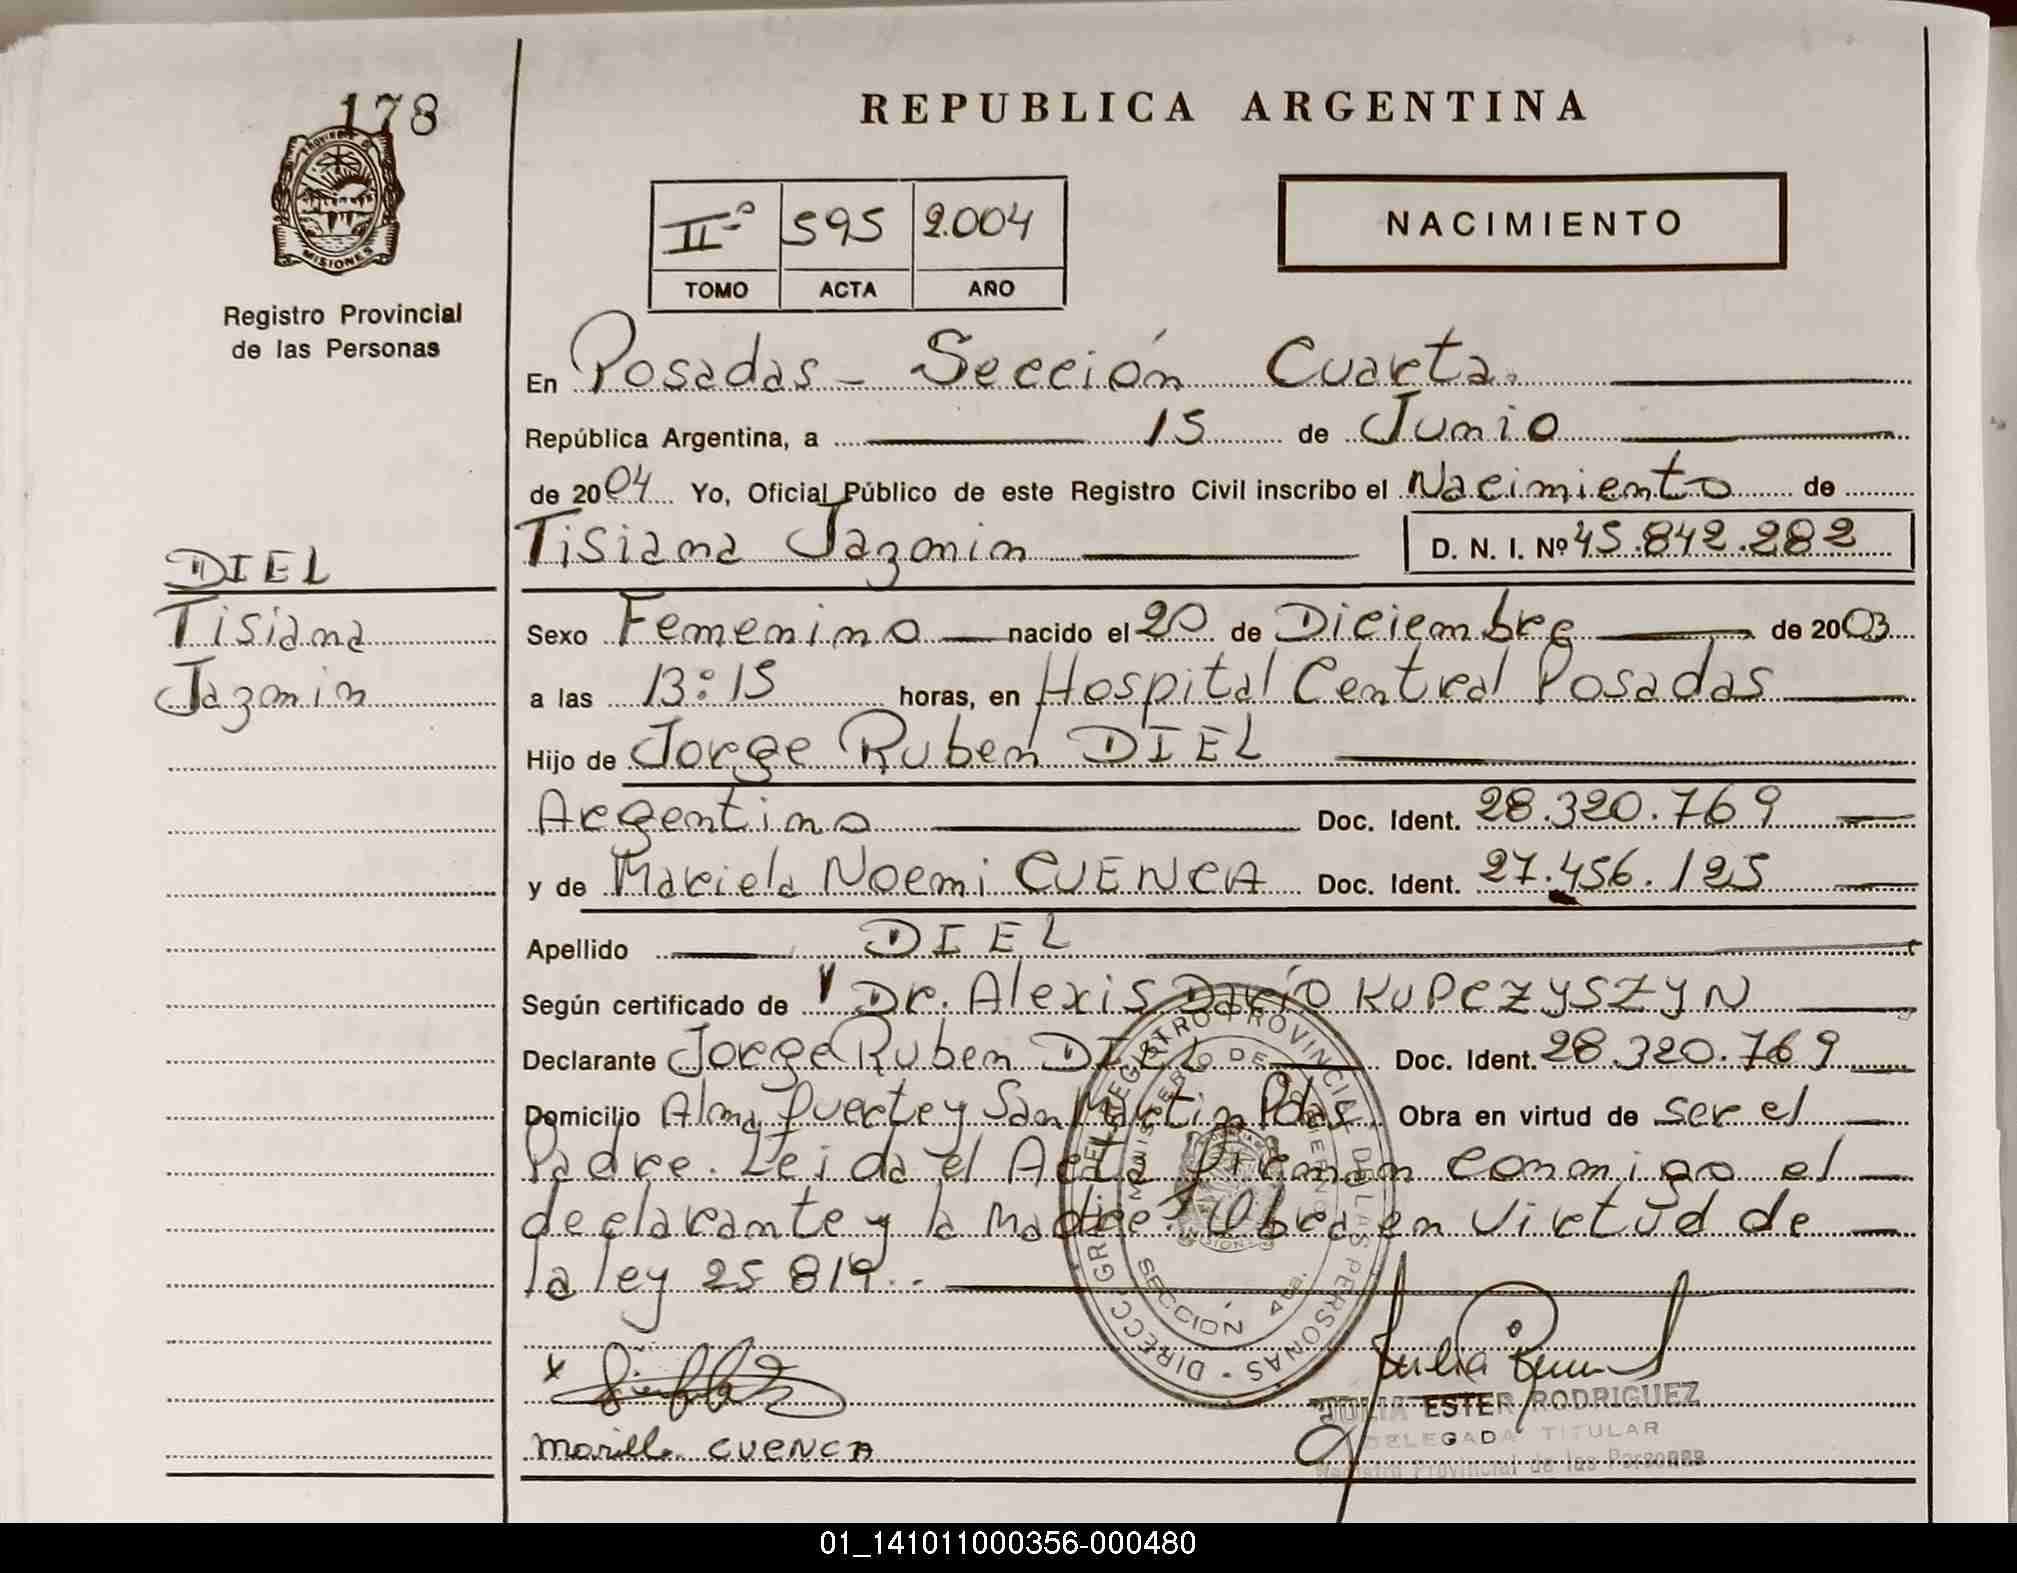 178
PROVINCIA DE
MISIONES
Registro Provincial
de las Personas
DIEL
Tisiana
Jazmin
REPUBLICA ARGENTINA
IIº 595 2.004
TOMO ACTA AÑO
NACIMIENTO
En Posadas - Sección Cuarta.
República Argentina, a 15 de Junio
de 2004 Yo, Oficial Público de este Registro Civil inscribo el Nacimiento de
Tisiana Jazmin D. N. I. Nº 45.842.282
Sexo Femenino nacido el 20 de Diciembre de 2003
a las 13:15 horas, en Hospital Central Posadas
Hijo de Jorge Ruben DIEL
Argentino Doc. Ident. 28.320.769
y de Mariela Noemi CUENCA Doc. Ident. 27.456.125
Apellido DIEL
Según certificado de Dr. Alexis Darío KUPCZYSZYN
Declarante Jorge Ruben DIEL Doc. Ident. 28.320.769
Domicilio Alma fuerte y San Martin Pdas. Obra en virtud de ser el
Padre. Leida el Acta Firman conmigo el
declarante y la Madre. Obra en virtud de
la ley 25 819..
DIRECC. GRAL. DEL REGISTRO PROVINCIAL DE LAS PERSONAS
MINISTERIO DE GOBIERNO
MISIONES
SECCIÓN 4ta.
x
Mariela CUENCA
JULIA ESTER RODRIGUEZ
DELEGADA TITULAR
Registro Provincial de las Personas
01_141011000356-000480